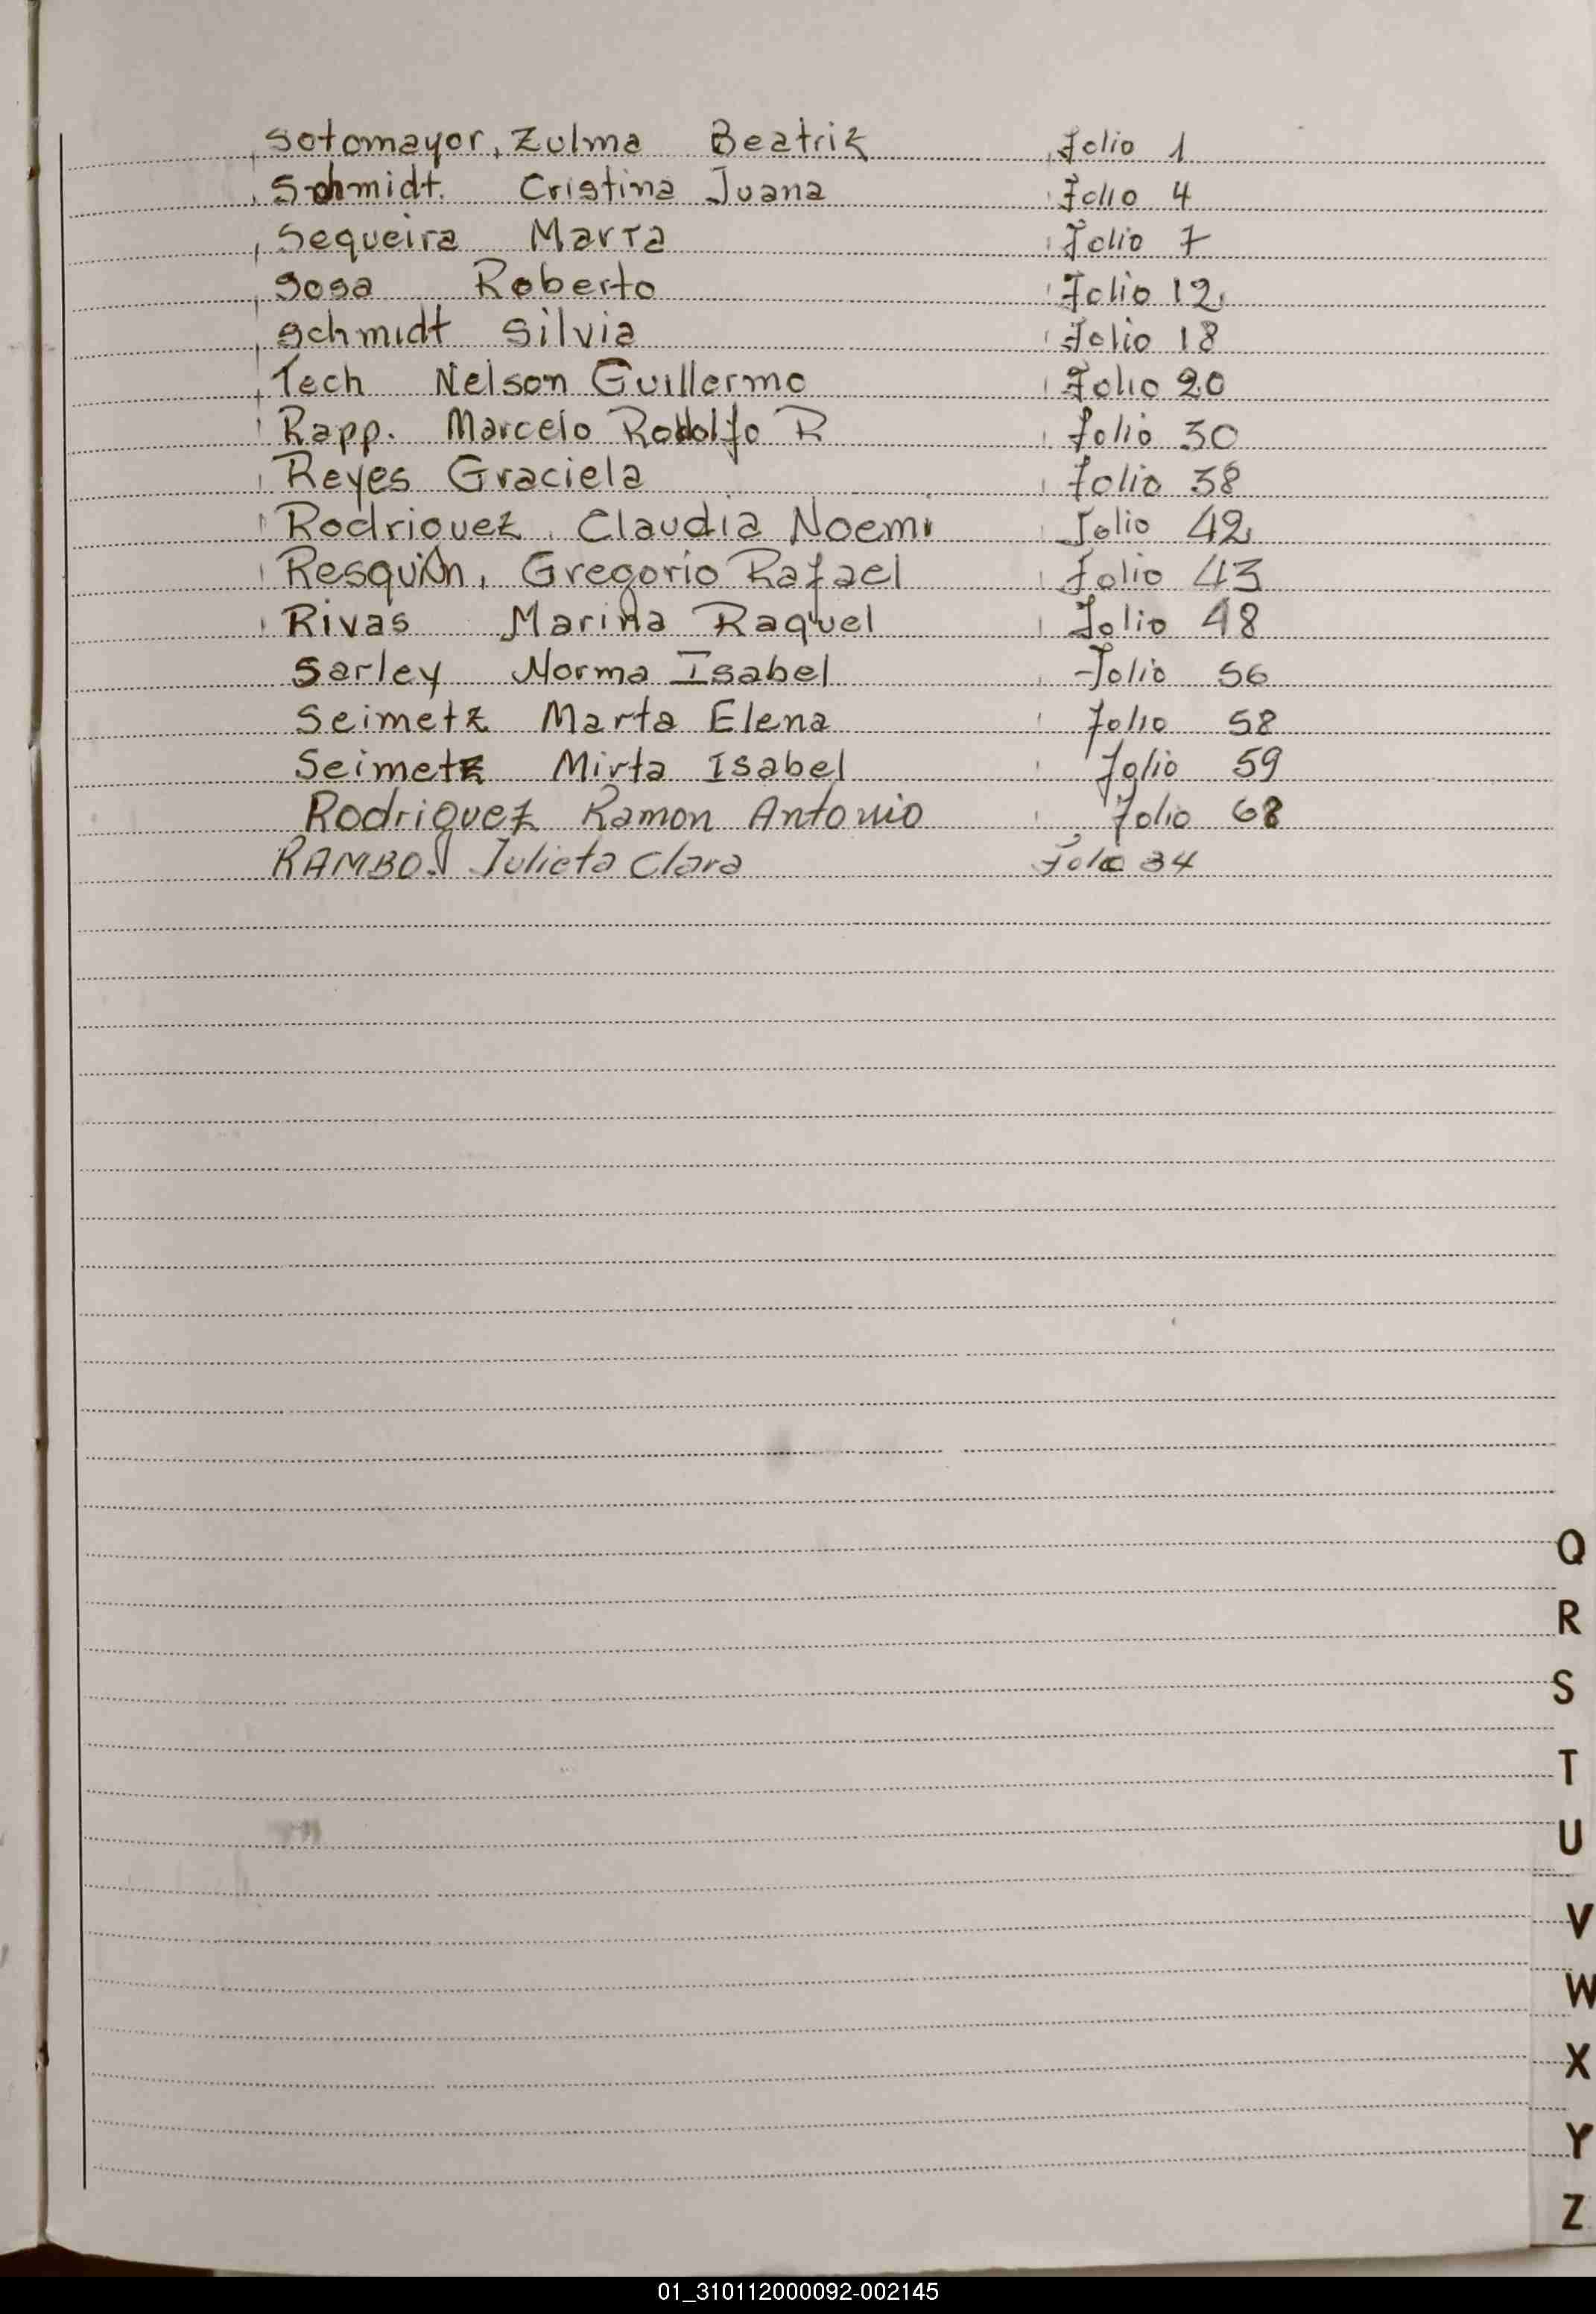 Sotomayor, Zulma Beatriz Folio 1
Schmidt. Cristina Juana Folio 4
Sequeira Marta Folio 7
Sosa Roberto Folio 12.
Schmidt Silvia Folio 18
Tech Nelson Guillermo Folio 20
Rapp. Marcelo Rodolfo R Folio 30
Reyes Graciela Folio 38
Rodriguez. Claudia Noemi Folio 42
Resquin, Gregorio Rafael Folio 43
Rivas Marina Raquel Folio 48
Sarley Norma Isabel Folio 56
Seimetz Marta Elena Folio 58
Seimetz Mirta Isabel Folio 59
Rodriguez Ramon Antonio Folio 68
RAMBO. Julieta Clara Folio 34
Q
R
S
T
U
V
W
X
Y
Z
01_310112000092-002145